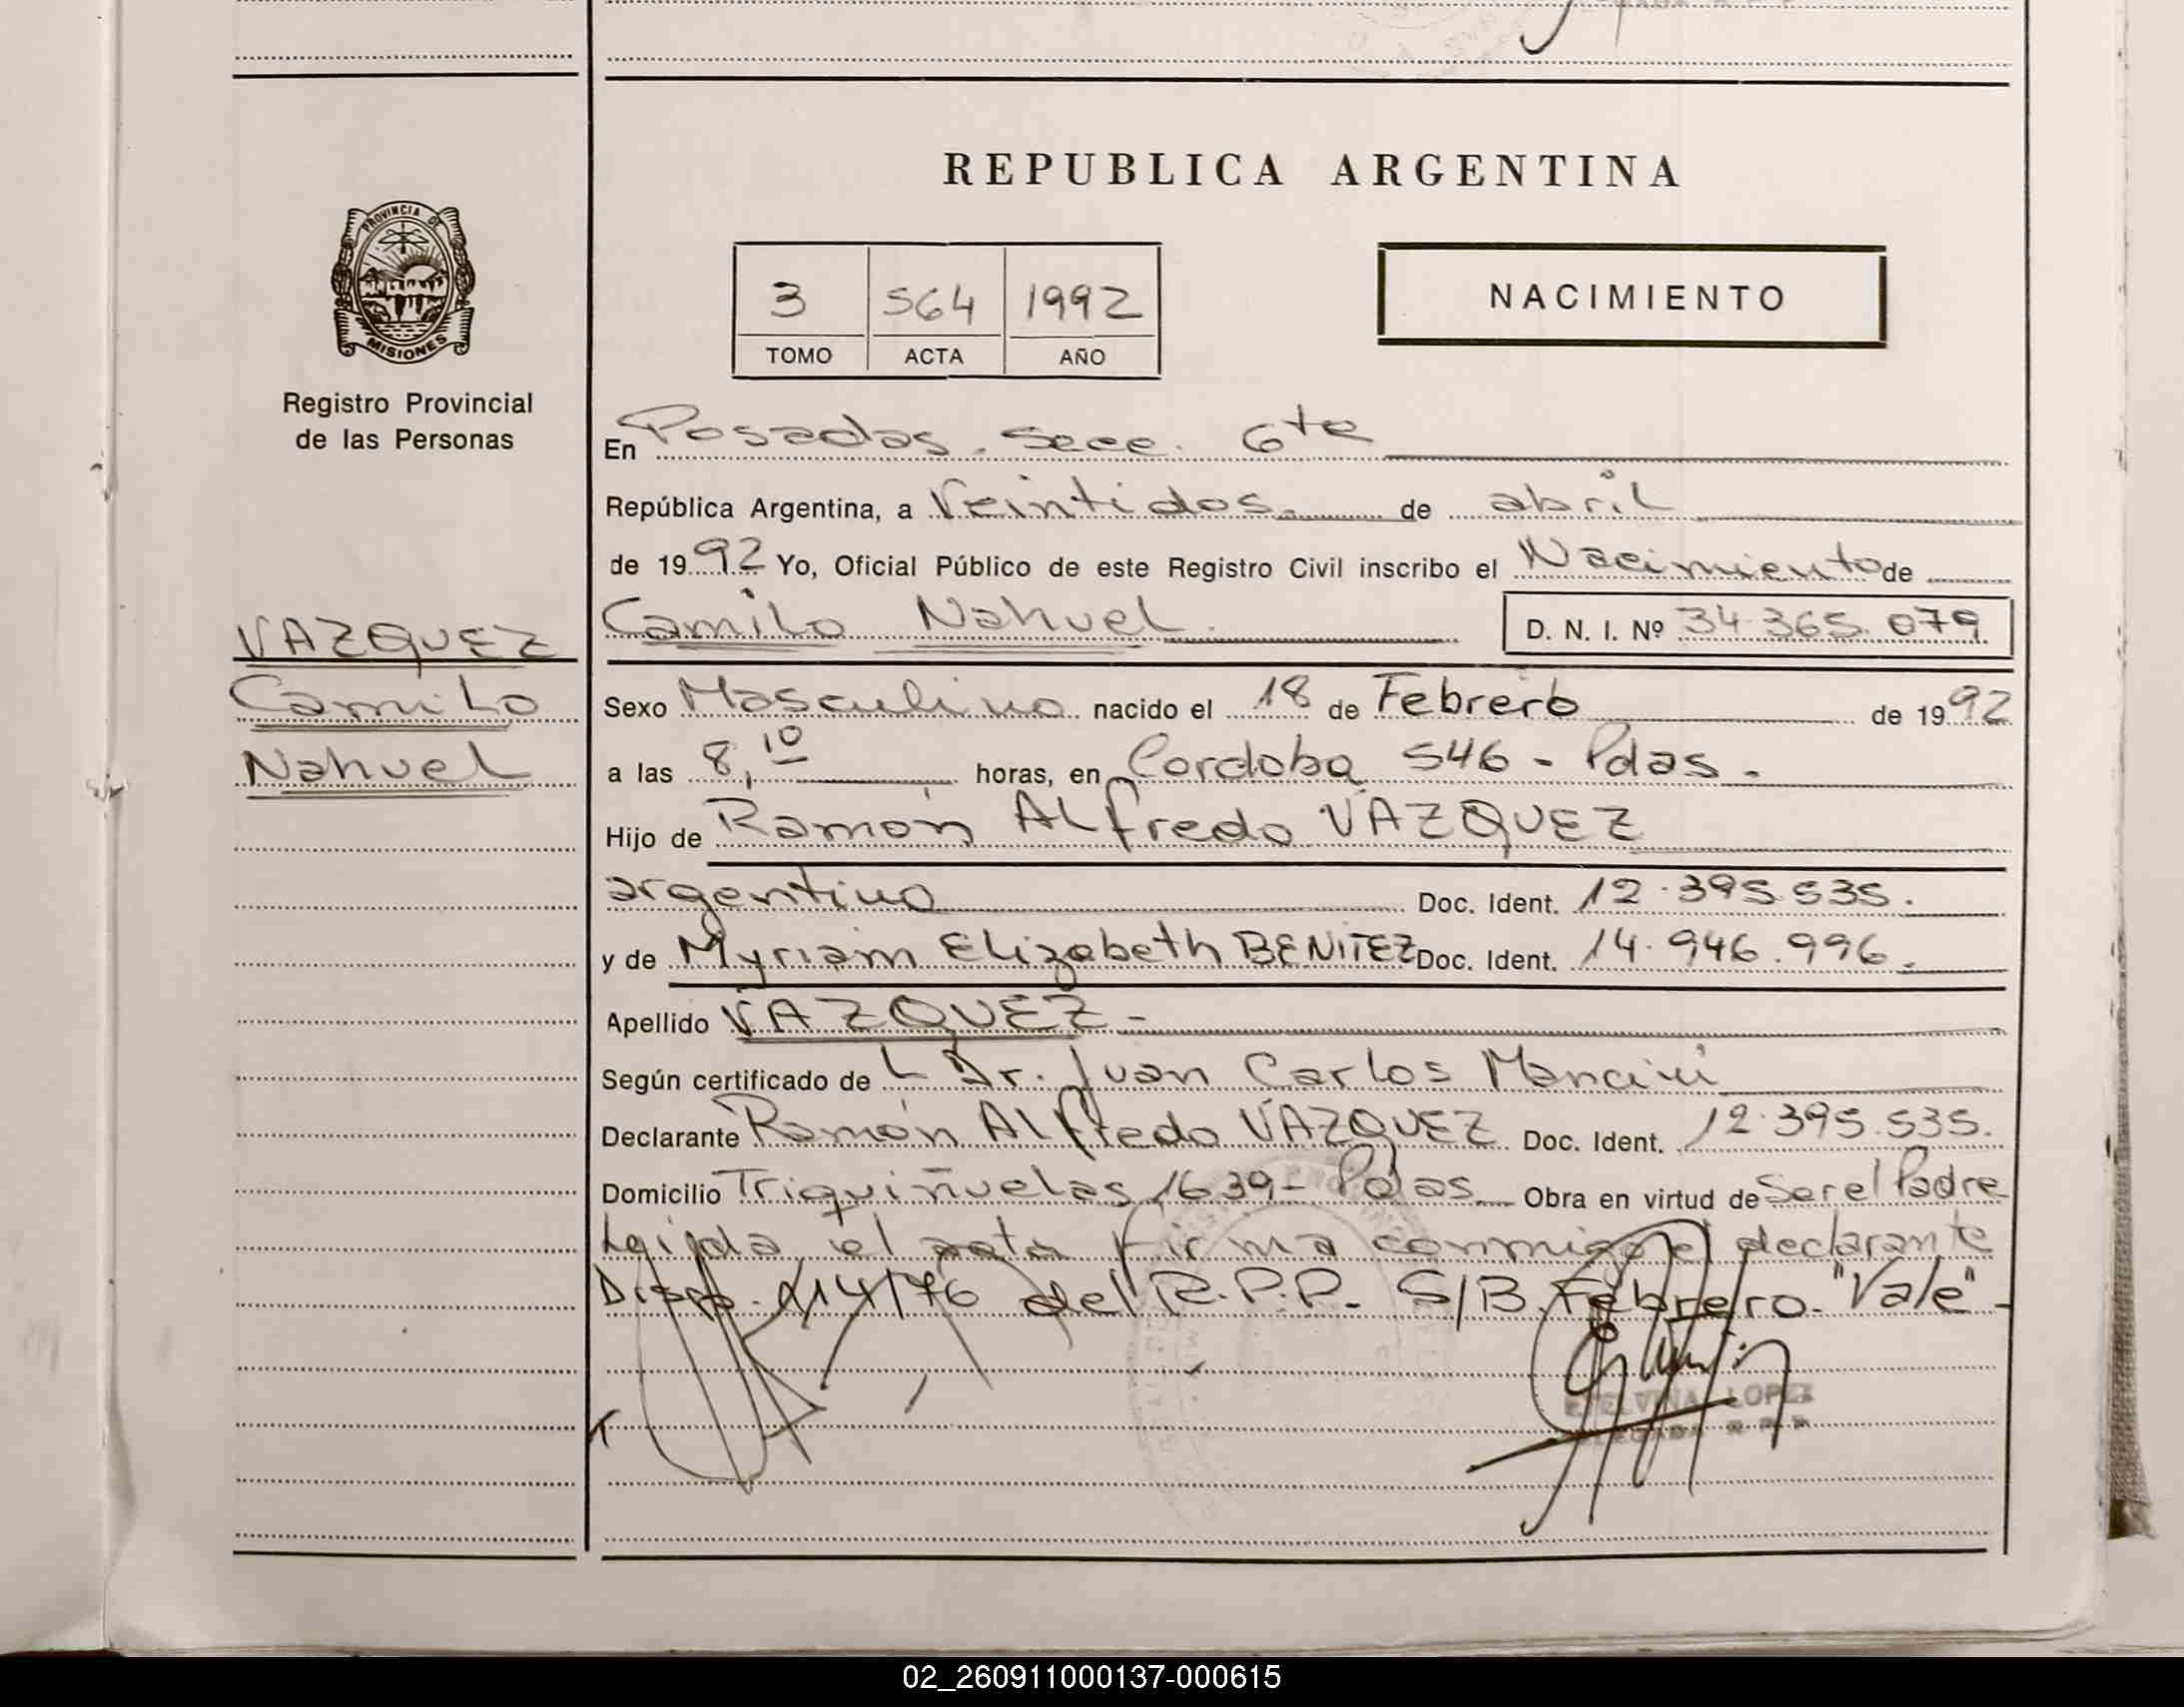 REPUBLICA ARGENTINA
PROVINCIA DE
MISIONES
Registro Provincial
de las Personas
3 564 1992
TOMO ACTA AÑO
NACIMIENTO
VAZQUEZ
Camilo
Nahuel
En Posadas. Secc. 6ta
República Argentina, a Veintidos de abril
de 1992 Yo, Oficial Público de este Registro Civil inscribo el Nacimiento de
Camilo Nahuel. D. N. I. Nº 34.365.079
Sexo Masculino nacido el 18 de Febrero de 1992
a las 8,10 horas, en Cordoba 546 - Pdas.
Hijo de Ramón Alfredo VAZQUEZ
argentino Doc. Ident. 12.395.535.
y de Myriam Elizabeth BENITEZ Doc. Ident. 14.946.996.
Apellido VAZQUEZ -
Según certificado de L Dr. Juan Carlos Mancini
Declarante Ramón Alfredo VAZQUEZ Doc. Ident. 12.395.535.
Domicilio Triquiñuelas 1639 - Pdas Obra en virtud de Ser el Padre
Leijda el acta firma conmigo el declarante
Disp. 214/76 del R.P.P. S/B. Febrero. "Vale" -
ETELVINA LOPEZ
02_260911000137-000615